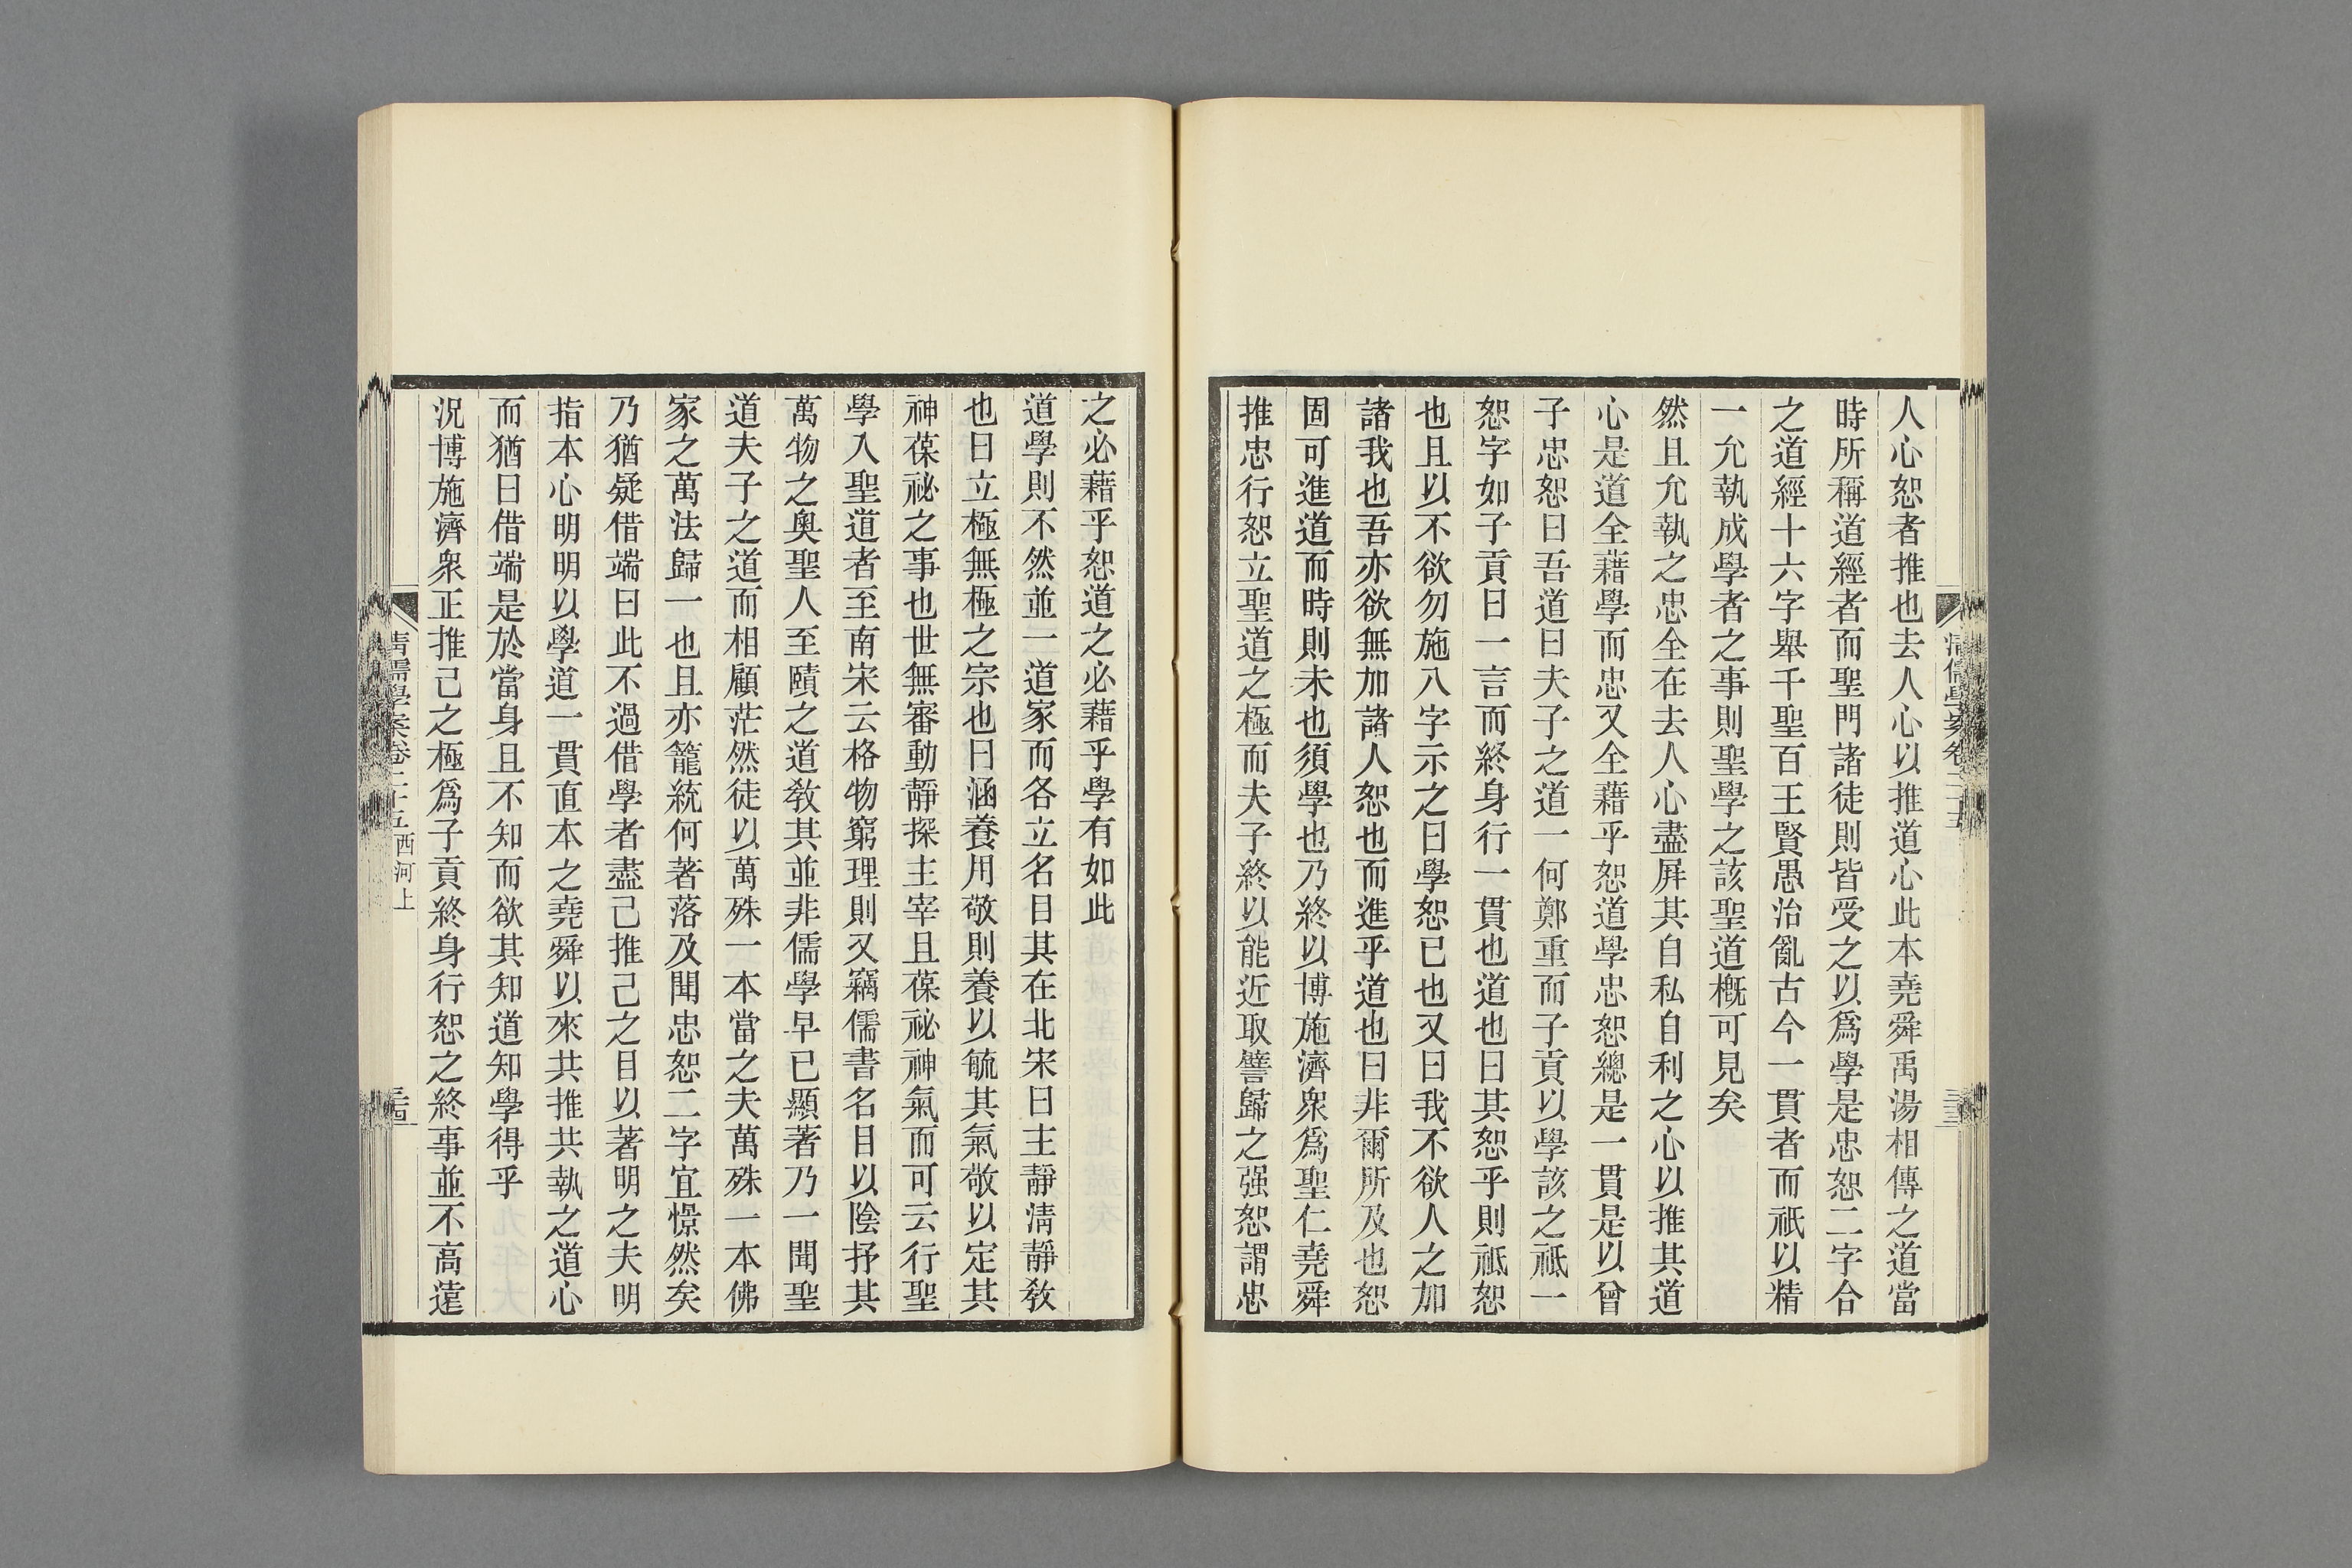 人心恕者推也去人心以推道心此本堯舜禹湯相傳之道當
時所稱道經者而聖門諸徒則皆受之以爲學是忠恕二字合
之道經十六字舉千聖百王賢愚治亂古今一貫者而祇以精
一允執成學者之事則聖學之該聖道槪可見矣
然且允執之忠全在去人心盡屛其自私自利之心以推其道
心是道全藉學而忠又全藉乎恕道學忠恕總是一貫是以曾
子忠恕曰吾道曰夫子之道一何鄭重而子貢以學該之祗一
恕字如子貢曰一言而終身行一貫也道也曰其恕乎則祗恕
也且以不欲勿施八字示之曰學恕已也又曰我不欲人之加
諸我也吾亦欲無加諸人恕也而進乎道也曰非爾所及也恕
固可進道而時則未也須學也乃終以博施濟衆爲聖仁堯舜
推忠行恕立聖道之極而夫子終以能近取譬歸之强恕謂忠
之必藉乎恕道之必藉乎學有如此
道學則不然並二道家而各立名目其在北宋曰主靜淸靜敎
也曰立極無極之宗也曰涵養用敬則養以毓其氣敬以定其
神葆祕之事也世無審動靜探主宰且葆祕神氣而可云行聖
學入聖道者至南宋云格物窮理則又竊儒書名目以陰抒其
萬物之奧聖人至賾之道敎其並非儒學早已顯著乃一聞聖
道夫子之道而相顧茫然徒以萬殊一本當之夫萬殊一本佛
家之萬法歸一也且亦籠統何著落及聞忠恕二字宜憬然矣
乃猶疑借端曰此不過借學者盡己推己之目以著明之夫明
指本心明明以學道一貫直本之堯舜以來共推共執之道心
而猶曰借端是於當身且不知而欲其知道知學得乎
況博施濟衆正推己之極爲子貢終身行恕之終事並不高遠
淸儒學案卷二十五 西河上